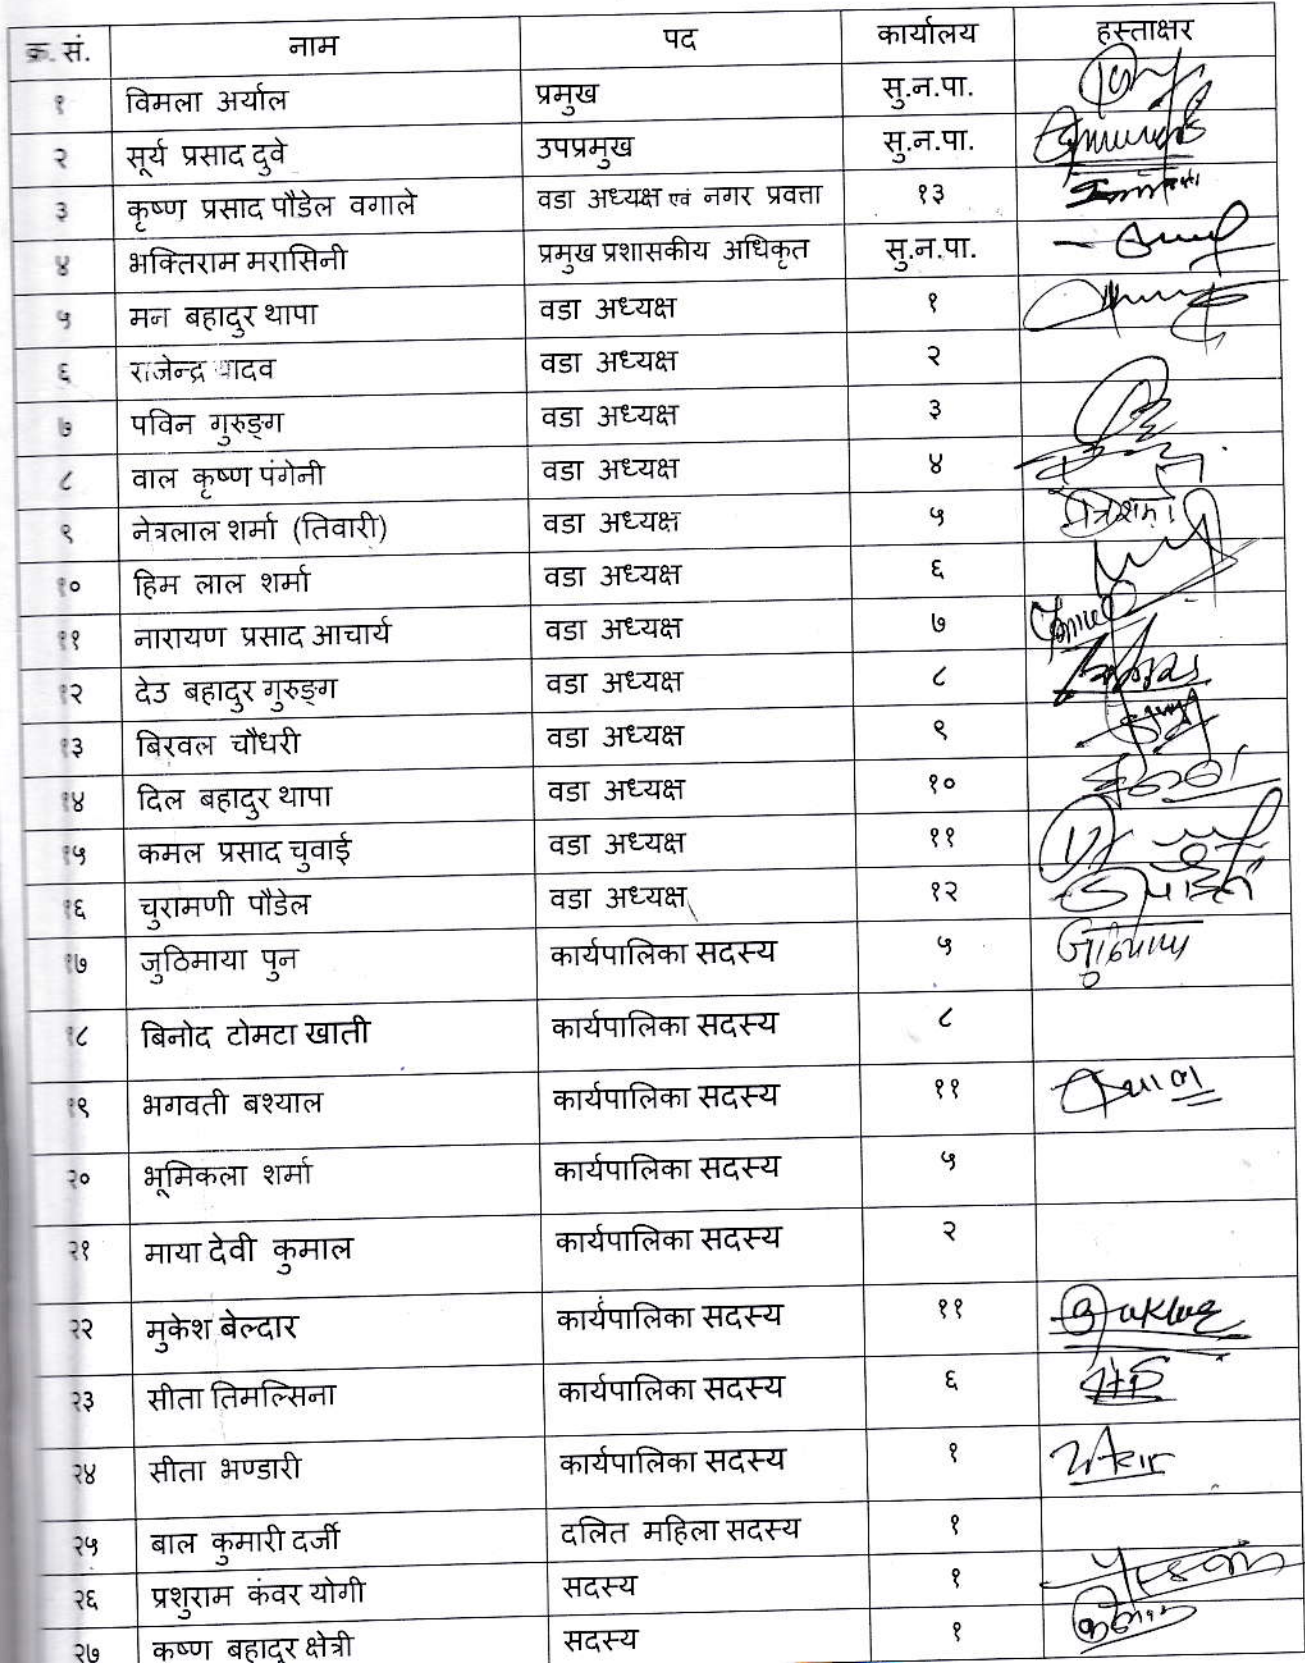 क्र. सं. नाम पद कार्यालय हस्ताक्षर
१ विमला अर्याल प्रमुख सु.न.पा.
२ सूर्य प्रसाद दुवे उपप्रमुख सु.न.पा.
३ कृष्ण प्रसाद पौडेल वगाले वडा अध्यक्ष एवं नगर प्रवत्ता १३
४ भक्तिराम मरासिनी प्रमुख प्रशासकीय अधिकृत सु.न.पा.
५ मन बहादुर थापा वडा अध्यक्ष १
६ राजेन्द्र यादव वडा अध्यक्ष २
७ पविन गुरुङ्ग वडा अध्यक्ष ३
८ वाल कृष्ण पंगेनी वडा अध्यक्ष ४
९ नेत्रलाल शर्मा (तिवारी) वडा अध्यक्ष ५
१० हिम लाल शर्मा वडा अध्यक्ष ६
११ नारायण प्रसाद आचार्य वडा अध्यक्ष ७
१२ देउ बहादुर गुरुङ्ग वडा अध्यक्ष ८
१३ बिरवल चौधरी वडा अध्यक्ष ९
१४ दिल बहादुर थापा वडा अध्यक्ष १०
१५ कमल प्रसाद चुवाई वडा अध्यक्ष ११
१६ चुरामणी पौडेल वडा अध्यक्ष १२
१७ जुठिमाया पुन कार्यपालिका सदस्य ५
१८ बिनोद टोमटा खाती कार्यपालिका सदस्य ८
१९ भगवती बश्याल कार्यपालिका सदस्य ११
२० भूमिकला शर्मा कार्यपालिका सदस्य ५
२१ माया देवी कुमाल कार्यपालिका सदस्य २
२२ मुकेश बेल्दार कार्यपालिका सदस्य ११
२३ सीता तिमल्सिना कार्यपालिका सदस्य ६
२४ सीता भण्डारी कार्यपालिका सदस्य १
२५ बाल कुमारी दर्जी दलित महिला सदस्य १
२६ प्रशुराम कंवर योगी सदस्य १
२७ कष्ण बहादुर क्षेत्री सदस्य १